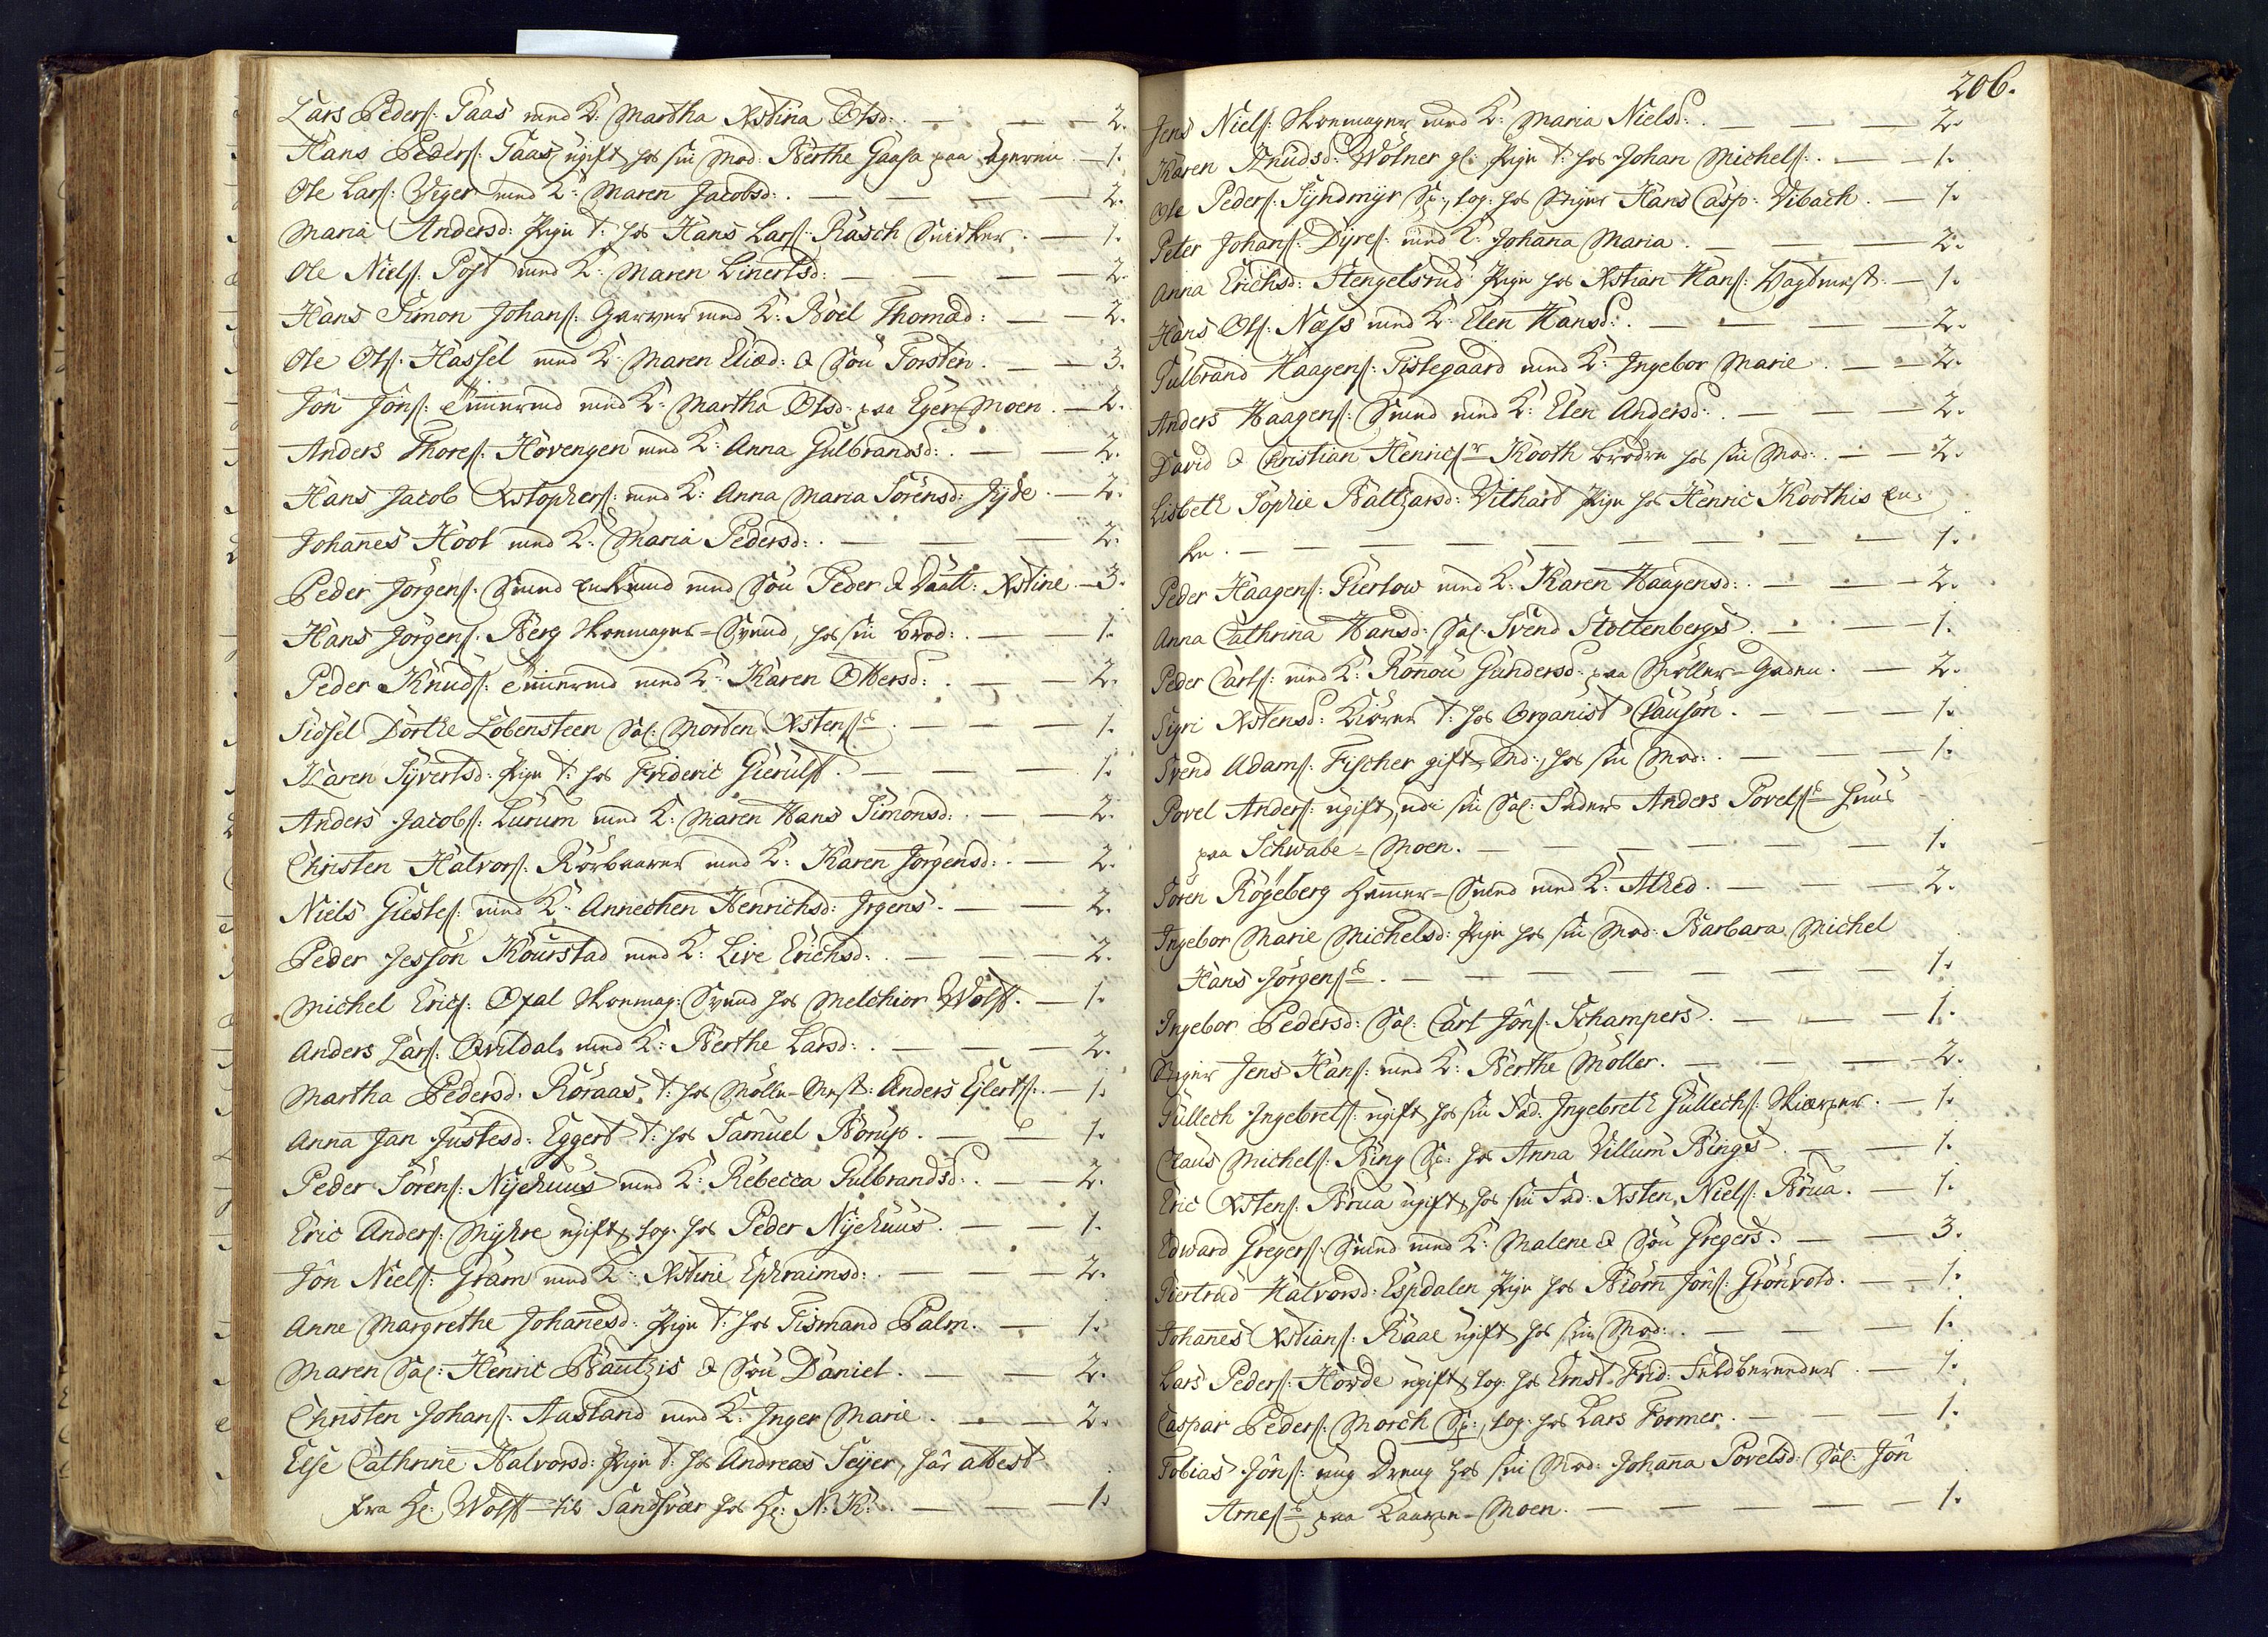 Lars Peders: Gaas med K: Martha Xstina Olsd: 2.
Hans Peders: Gaas, ugift hos sin Mod: Berthe Gaasa paa 1.
Ole Lars: Veger med K: Maren Jacobsd: 2.
Maria Andersd: Pige t: hos Hans Lars: Rasch Snidker 1.
Ole Niels: Post med K: Maren Linertsd: 2.
Hans Simon Johans: Garver med K: Boel Thomæd: 2.
Ole Ols: Hassel med K: Maren Eliæd: & Søn Torsten 3.
Jon Jons: Tømmermd med K: Martha Olsd: paa Eger-Moen 2.
Anders Thores: Hovengen med K: Anna Gulbrandsd: 2.
Hans Jacob Xstophers: med K: Anna Maria Sörensd: Jyde 2.
Johannes Hoot med K: Maria Pedersd: 2.
Peder Jörgens: Smed Enkemd med Søn Peder & Daatt: Xstine 3.
Hans Jörgens: Berg Skomager-Svend, hos sin brod: 1.
Peder Knuds: Tømmermd med K: Karen Ottersd: 2.
Sidsel Dorthe Lobensteen Sal: Morten Xstens: 1.
Karen Syvertsd: Pige t: hos Frideric Gierulff. 1.
Anders Jacobs: Lurum med K: Maren Hans Simonsd: 2.
Christen Halvors: Rörbaarer med K: Karen Jörgensd: 2.
Niels Giestes: med K: Annechen Henrichsd: Irgens 2.
Peder Jesson Kourstad med K: Live Erichsd: 2.
Michel Erics: Opal Skomag: Svend hos Melchior Wolff. 1.
Anders Lars: Qvildal med K: Berthe Larsd: 2.
Martha Pedersd: Röraas t: hos Mölle-Mest: Anders Ejlerts: 1.
Anna Jan Justesd: Eggert t: hos Samuel Borup. 1.
Peder Sörens: Nyehuus med K: Rebecca Gulbrandsd: 2.
Eric Anders: Myhre ugift, log: hos Peder Nyehuus. 1.
Jon Niels: Gram med K: Xstine Ephraimsd: 2.
Anne Margrethe Johannesd: Pige t: hos Tismand Palm. 1.
Maren Sal: Henric Bautzis & Søn Daniel. 2.
Christen Johans: Aasland med K: Inger Marie 2.
Else Cathrine Halvorsd: Pige t: hos Andreas Seyer, har attest
fra Hr: Wolff til Sandsvær hos Hr: N: K: 1.
206.
Jens Niels: Skomager med K: Maria Nielsd: 2.
Karen Knudsd: Wolner gl: Pige t: hos Johan Michels: 1.
Ole Peders: Syndmyr log: hos Stiger Hans Casp: Vibach. 1.
Peter Johans: Dyres: med K: Johanna Maria. 2.
Anna Erichsd: Stengelsrud Pige hos Xstian Hans: Vagtmest: 1.
Hans Ols: Næss med K: Elen Hansd: 2.
Gulbrand Haagens: Tistegaard med K: Ingebor Marie. 2.
Anders Haagens: Smed med K: Elen Andersd: 2.
David & Christian Henrics: Kooth brødre hos sin Mod: 2.
Lisbeth Sophie Baltzarsd: Vithard Pige hos Henric Koothis En-
ke. 1.
Peder Haagens: Fiertow med K: Karen Haagensd: 2.
Anna Cathrina Hansd: Sal: Svend Stoltenbergs. 1.
Peder Carls: med K: Ronou Gundersd: paa Möller-Gaden. 2.
Sigri Xstensd: t: hos Organist Clauson. 1.
Svend Adams: Fischer gift Md:, hos sin Mod: 1.
Povel Anders: ugift, udi sin Sal: Faders Anders Povels: huus
paa Schwabe-Moen. 1.
Sören Rögeberg Hammer-Smed med K: Alhed. 2.
Ingebor Marie Michelsd: Pige hos sin Mod: Barbara Michel
Hans Jörgens: 1.
Ingebor Pedersd: Sal: Carl Jons: Schampers. 1.
Stiger Jens Hans: med K: Berthe Möller. 2.
Gullech Ingebrets: ugift, hos sin Fad: Ingebreth Gullechs: Skiærper. 1.
Claus Michels: Bing hos Anna Villum Bings 1.
Eric Xstens: Brua ugift, hos sin Fad: Xsten Niels: Brua. 1.
Edward Gregers: Smed med K: Malene & Søn Gregers. 3.
Giertrud Halvorsd: Espdalen Pige hos Biörn Jons: Grönvold. 1.
Johannes Xstians: Raae ugift hos sin Mod: 1.
Lars Peders: Hovde ugift, log: hos Ernst Frid: Feldbereeder 1.
Caspar Peders: Morch log: hos Lars Former. 1.
Tobias Jons: ung Dreng hos sin Mod: Johanna Povelsd: Sal: Jon
Arnes: paa Moen. 1.